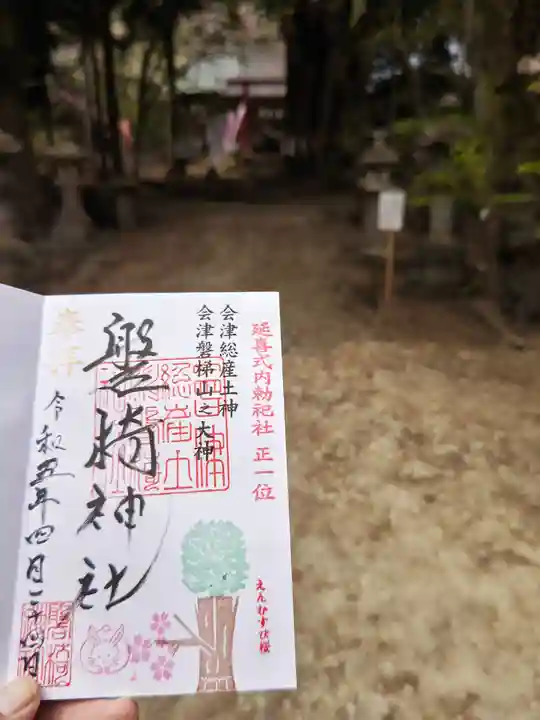 延喜式内勅祀社 正一位
会津総産土神
会津磐梯山之大神
奉拝
磐椅神社
令和五年四月二十八日
えんむすび桜
会津総産土
磐椅